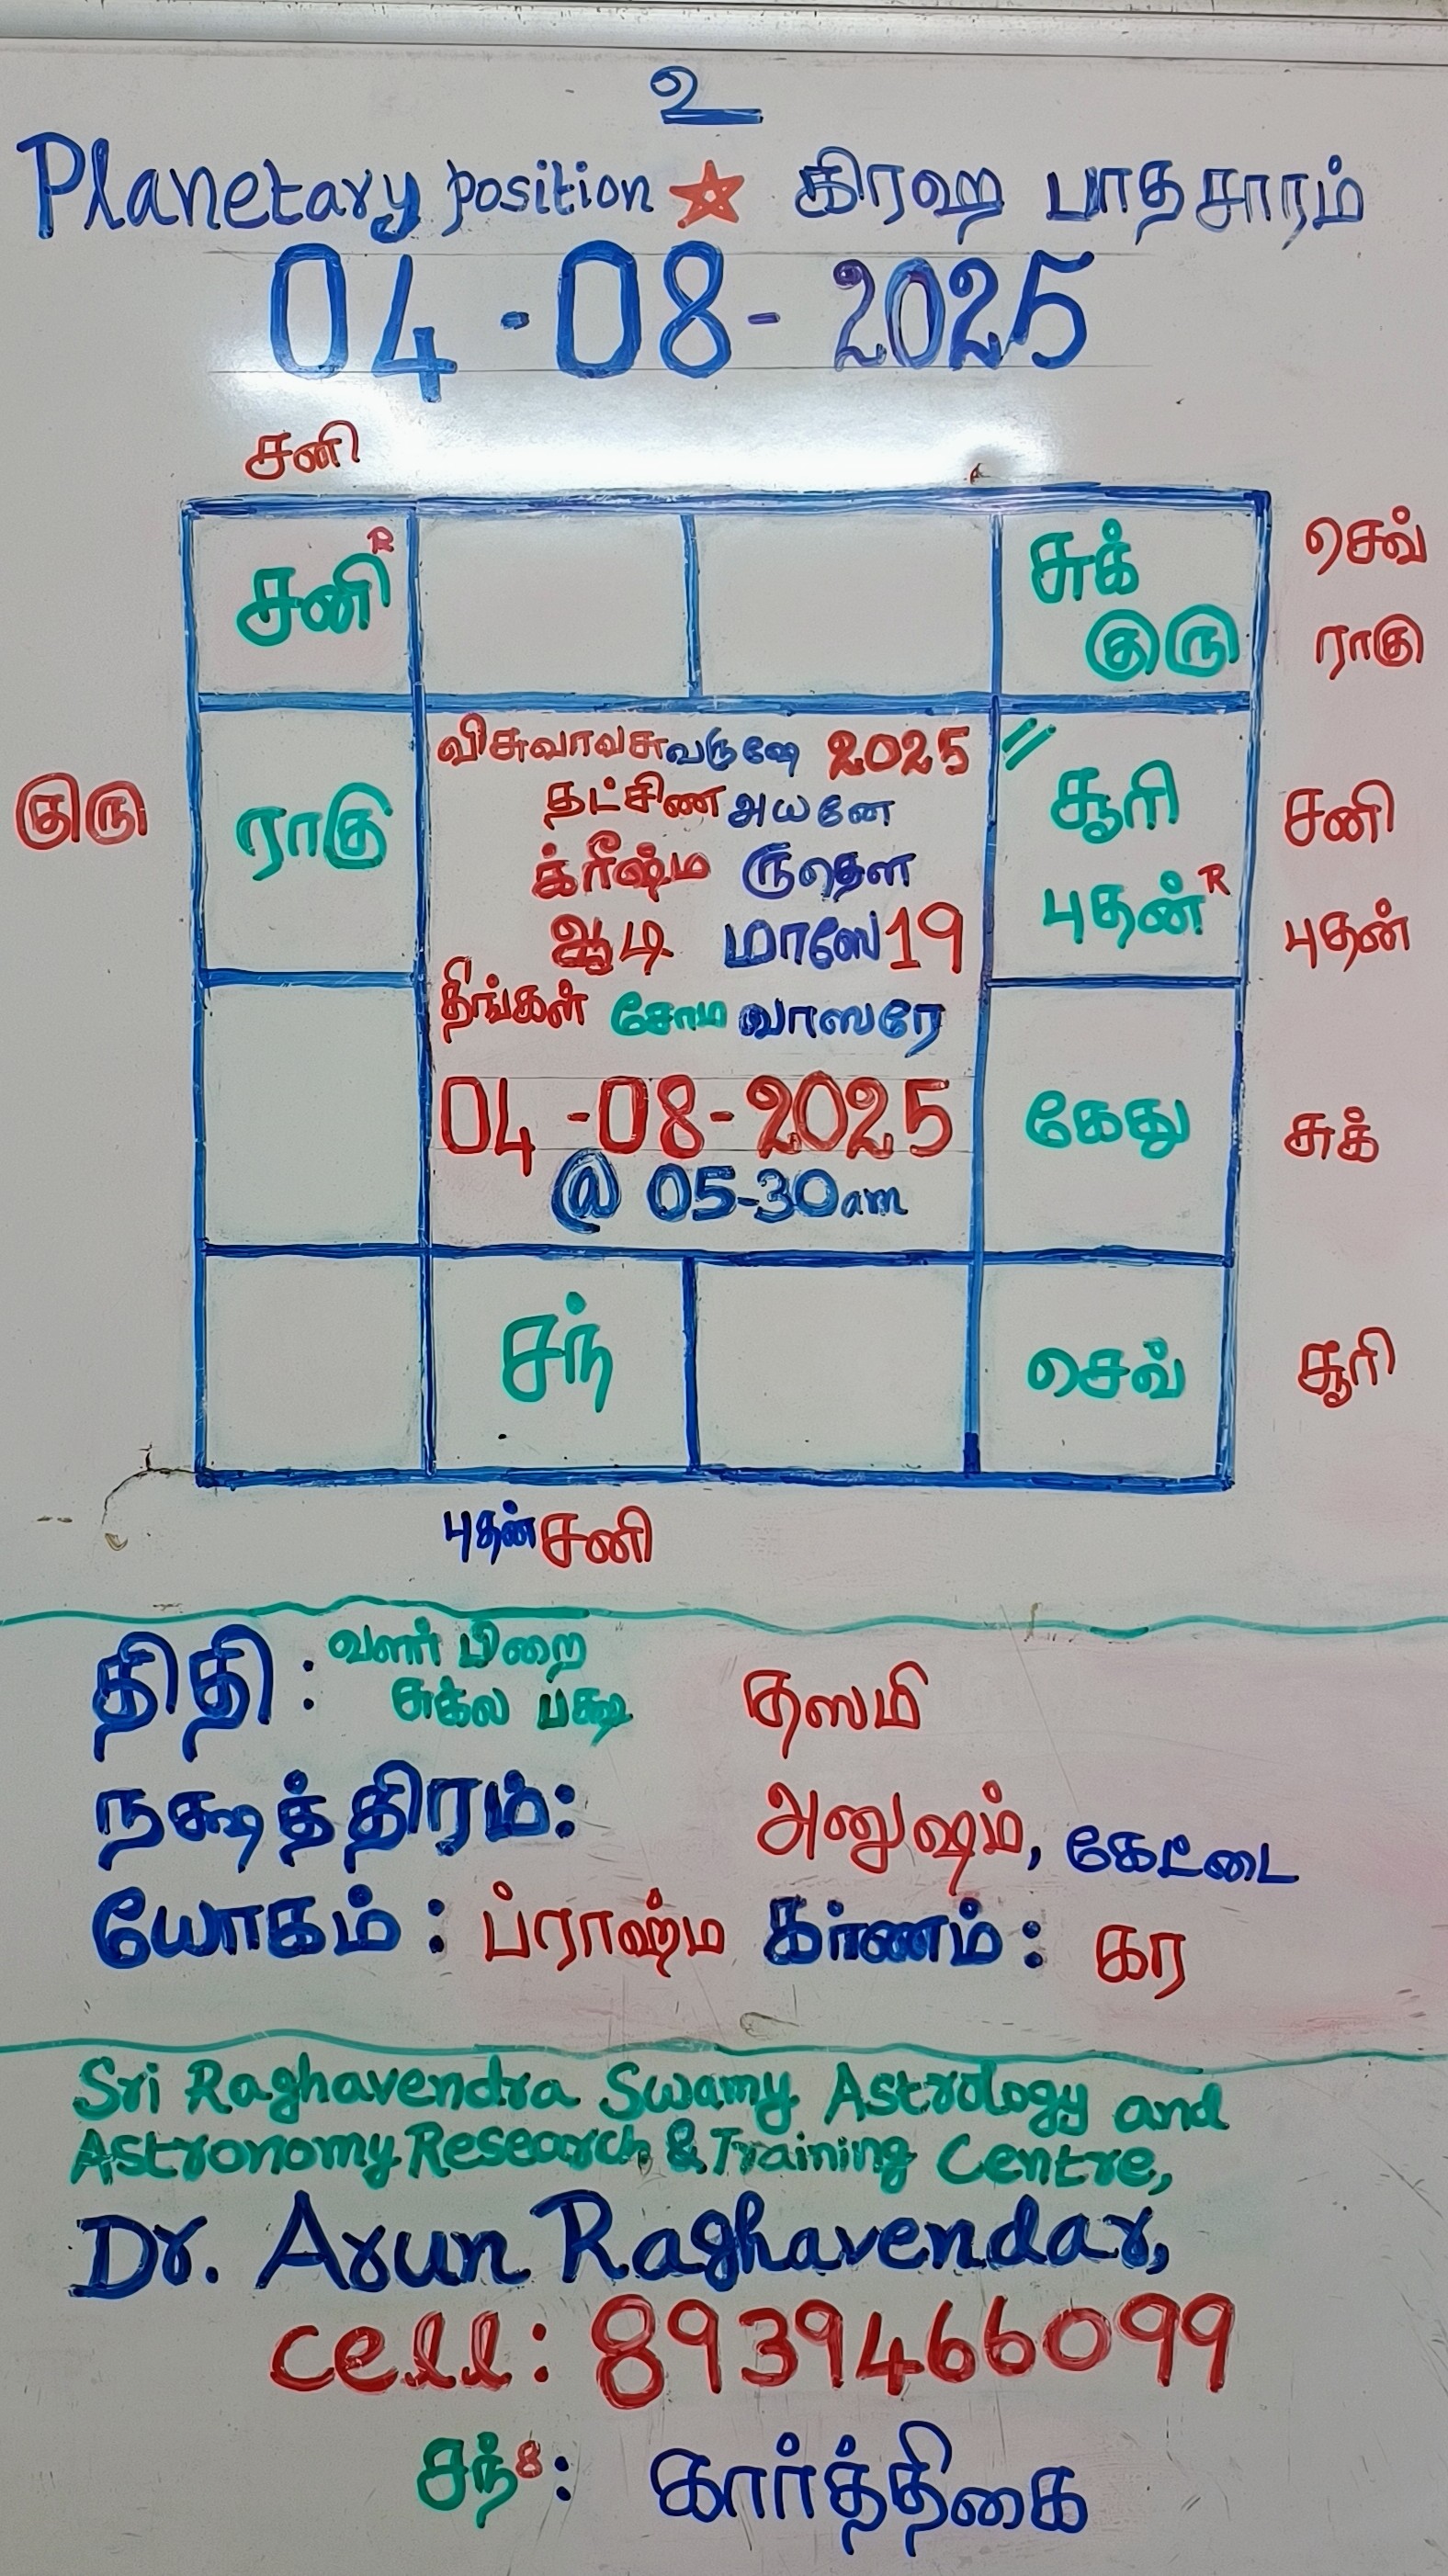 உ
Planetary position ☆ கிரஹ பாதசாரம்
04-08-2025
சனி
சனி R
சுக்
குரு
செவ்
ராகு
குரு
ராகு
விசுவாவசுவருஷே 2025
தட்சிண அயனே
க்ரீஷ்ம ருதௌ
ஆடி மாஸே 19
திங்கள் சோம வாஸரே
04-08-2025
@ 05-30am
சூரி
புதன் R
சனி
புதன்
கேது
சுக்
சந்
செவ்
சூரி
புதன் சனி
திதி : வளர் பிறை
சுக்ல பக்ஷ தஸமி
நக்ஷத்திரம்: அனுஷம், கேட்டை
யோகம் : ப்ராஹ்ம கர்ணம் : கர
Sri Raghavendra Swamy Astrology and
Astronomy Research & Training Centre,
Dr. Arun Raghavendar,
cell: 8939466099
சந் 8 : கார்த்திகை